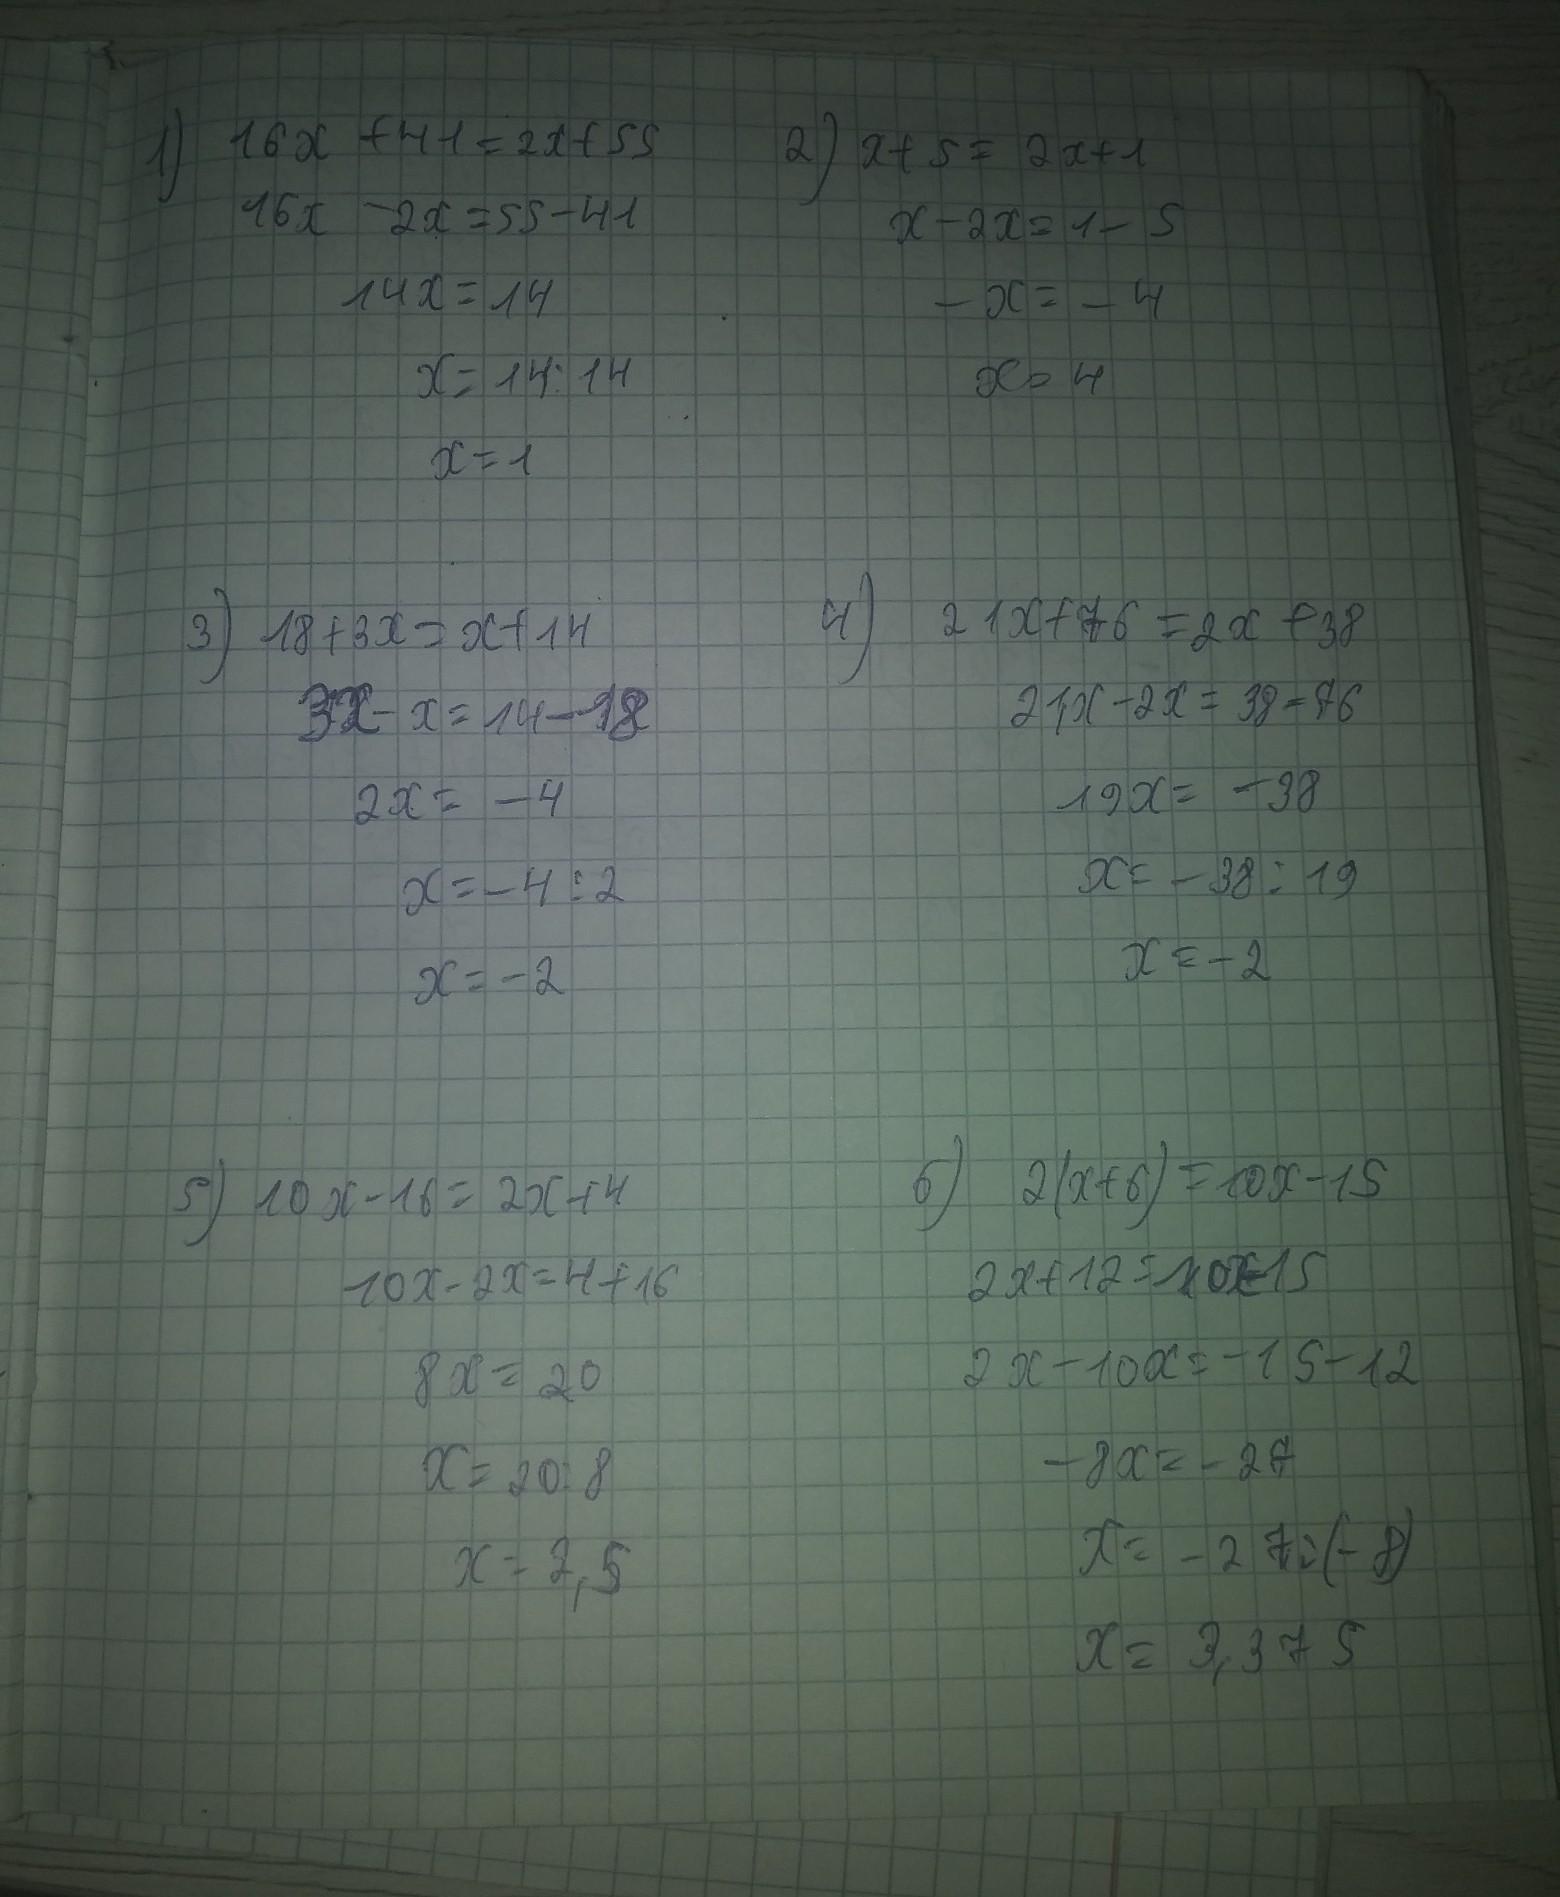 1) 16x + 41 = 2x + 55
16x - 2x = 55 - 41
14x = 14
x = 14 : 14
x = 1
2) x + 5 = 2x + 1
x - 2x = 1 - 5
- x = - 4
x = 4
3) 18 + 3x = x + 14
3x - x = 14 - 18
2x = - 4
x = - 4 : 2
x = - 2
4) 21x + 76 = 2x + 38
21x - 2x = 38 - 76
19x = - 38
x = - 38 : 19
x = - 2
5) 10x - 16 = 2x + 4
10x - 2x = 4 + 16
8x = 20
x = 20 : 8
x = 2,5
6) 2(x + 6) = 10x - 15
2x + 12 = 10x - 15
2x - 10x = - 15 - 12
- 8x = - 27
x = - 27 : (- 8)
x = 3,375